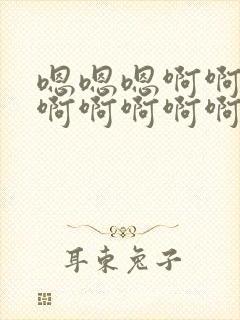 嗯嗯嗯啊啊
啊啊啊啊啊
耳束兔子